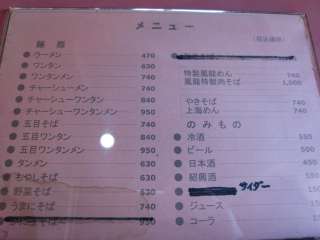 メニュー
麺類
ラーメン 470
ワンタン 630
ワンタンメン 740
チャーシューメン 740
チャーシューワンタン 840
チャーシューワンタンメン 950
五目そば 740
五目ワンタン 840
五目ワンタンメン 950
タンメン 630
もやしそば 630
野菜そば 630
うまにそば 740
950
(税込価格)
特製鳳龍めん 740
鳳龍特製肉そば 1,000
やきそば 740
上海めん 740
のみもの
冷酒 550
ビール 500
日本酒 450
紹興酒 550
サイダー
ジュース
コーラ